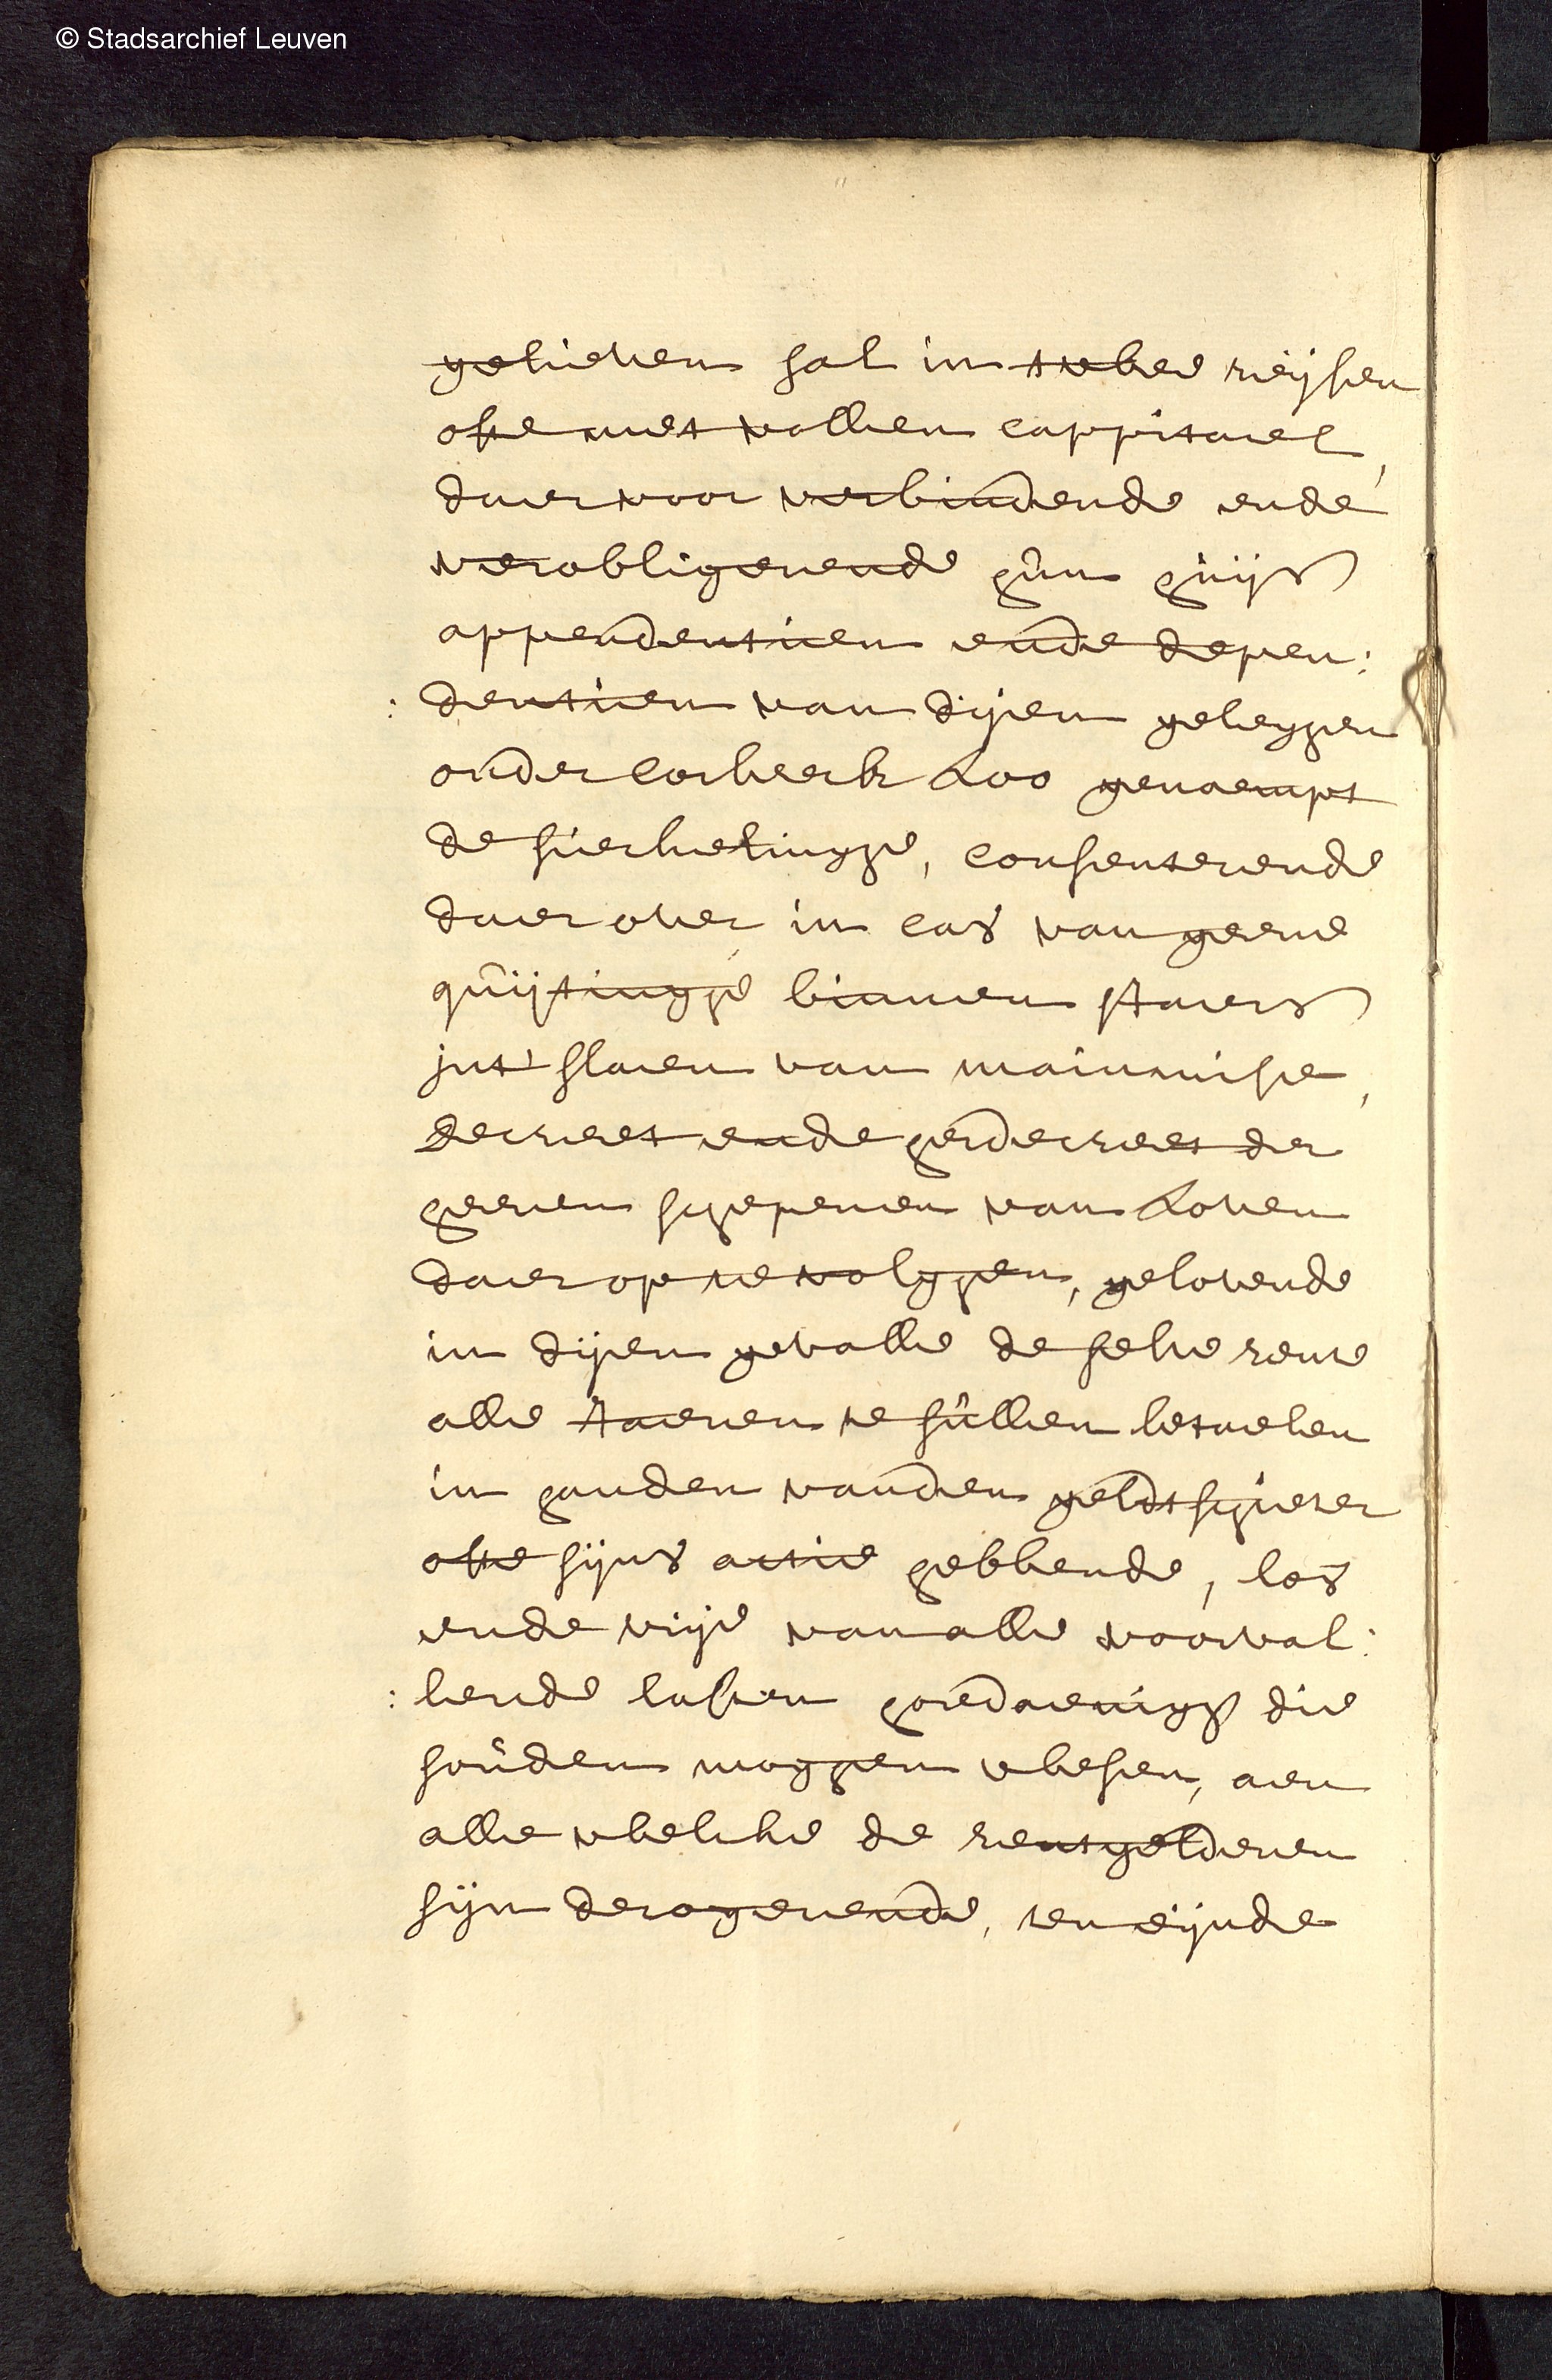 © Stadsarchief Leuven
gelieven sal in twee reijsen
ofte met vollen cappitael,
daer voor verbindende ende
verobligerende hun huijs
appendentien ende depen:
:dentien van dijen gelegen
onder Corbeeck Loo genaempt
de hierhelingge, consenterende
daer over in cas van geene
quijtinge binnen sJaers
int slaen van mainmise,
decreet ende herdecreet der
heeren schepenen van Loven
daer op te volgen, gelovende
in dijen gevalle de selve rente
alle Jaeren te sullen betaelen
in handen vanden geldtschieter
ofte sijns actie hebbende, los
ende vrije van alle voorval:
:lende lasten hoedanich die
souden mogen wesen, aen
alle welcke de rentgelderen
sijn derogerende, ten eijnde